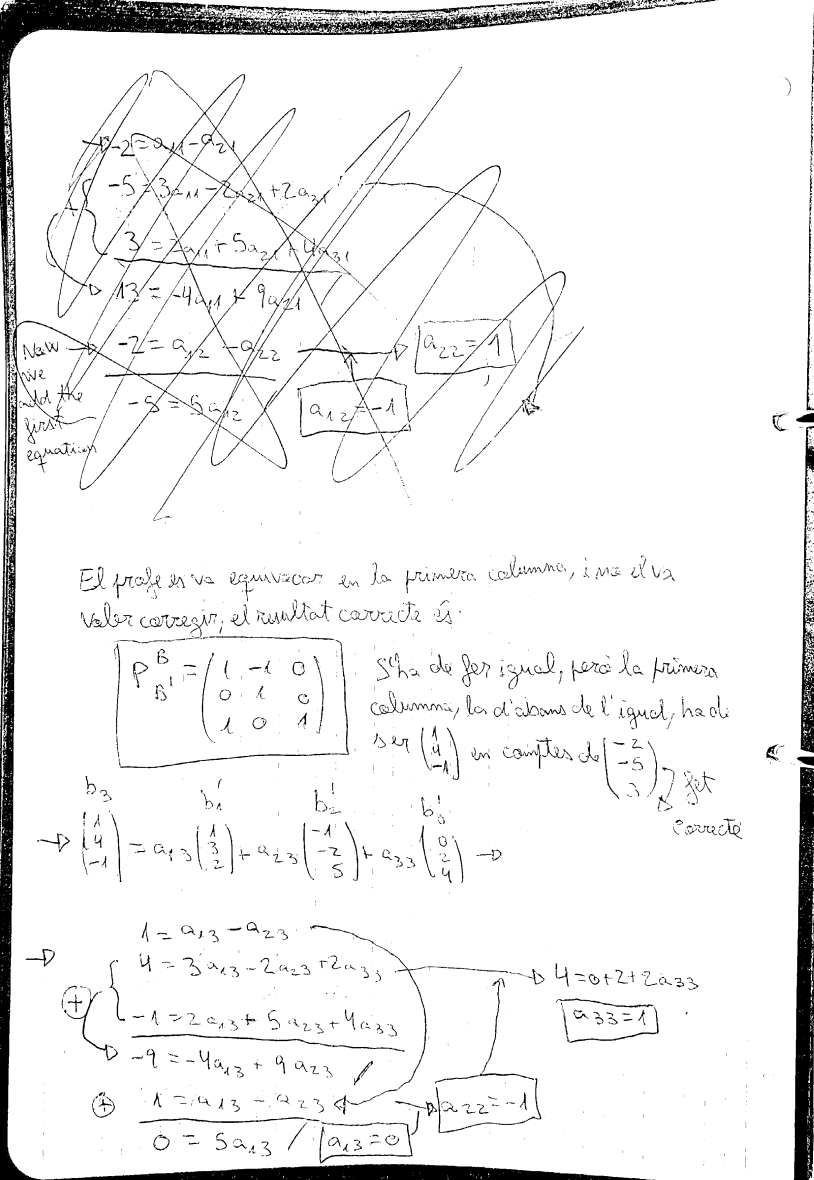 -2 = a₁₁ - a₂₁
-5 = 3a₁₁ - 2a₂₁ + 2a₃₁
3 = 2a₁₁ + 5a₂₁ + 4a₃₁
13 = -4a₁₁ + 9a₂₁
Now we add the first equation
-2 = a₁₂ - a₂₂
a₂₂ = 1
-5 = 5a₁₂
a₁₂ = -1
El profe es va equivocar en la primera columna, i no el va
valer corregir, el resultat correcte és:
P^B_B' = (1 -1 0
0 1 0
1 0 1)
S'ha de fer igual, però la primera
columna, la d'abans de l'igual, ha de
ser (1 4 -1) en comptes de (-2 -5 3) fet
correcte
b₃ b₁' b₂' b₃'
(1 4 -1) = a₁₃ (1 3 2) + a₂₃ (-1 -2 5) + a₃₃ (0 2 4)
1 = a₁₃ - a₂₃
4 = 3a₁₃ - 2a₂₃ + 2a₃₃
4 = 0+2+2a₃₃
a₃₃ = 1
+
-1 = 2a₁₃ + 5a₂₃ + 4a₃₃
-9 = -4a₁₃ + 9a₂₃
+ 1 = a₁₃ - a₂₃
a₂₂ = -1
0 = 5a₁₃ / a₁₃ = 0